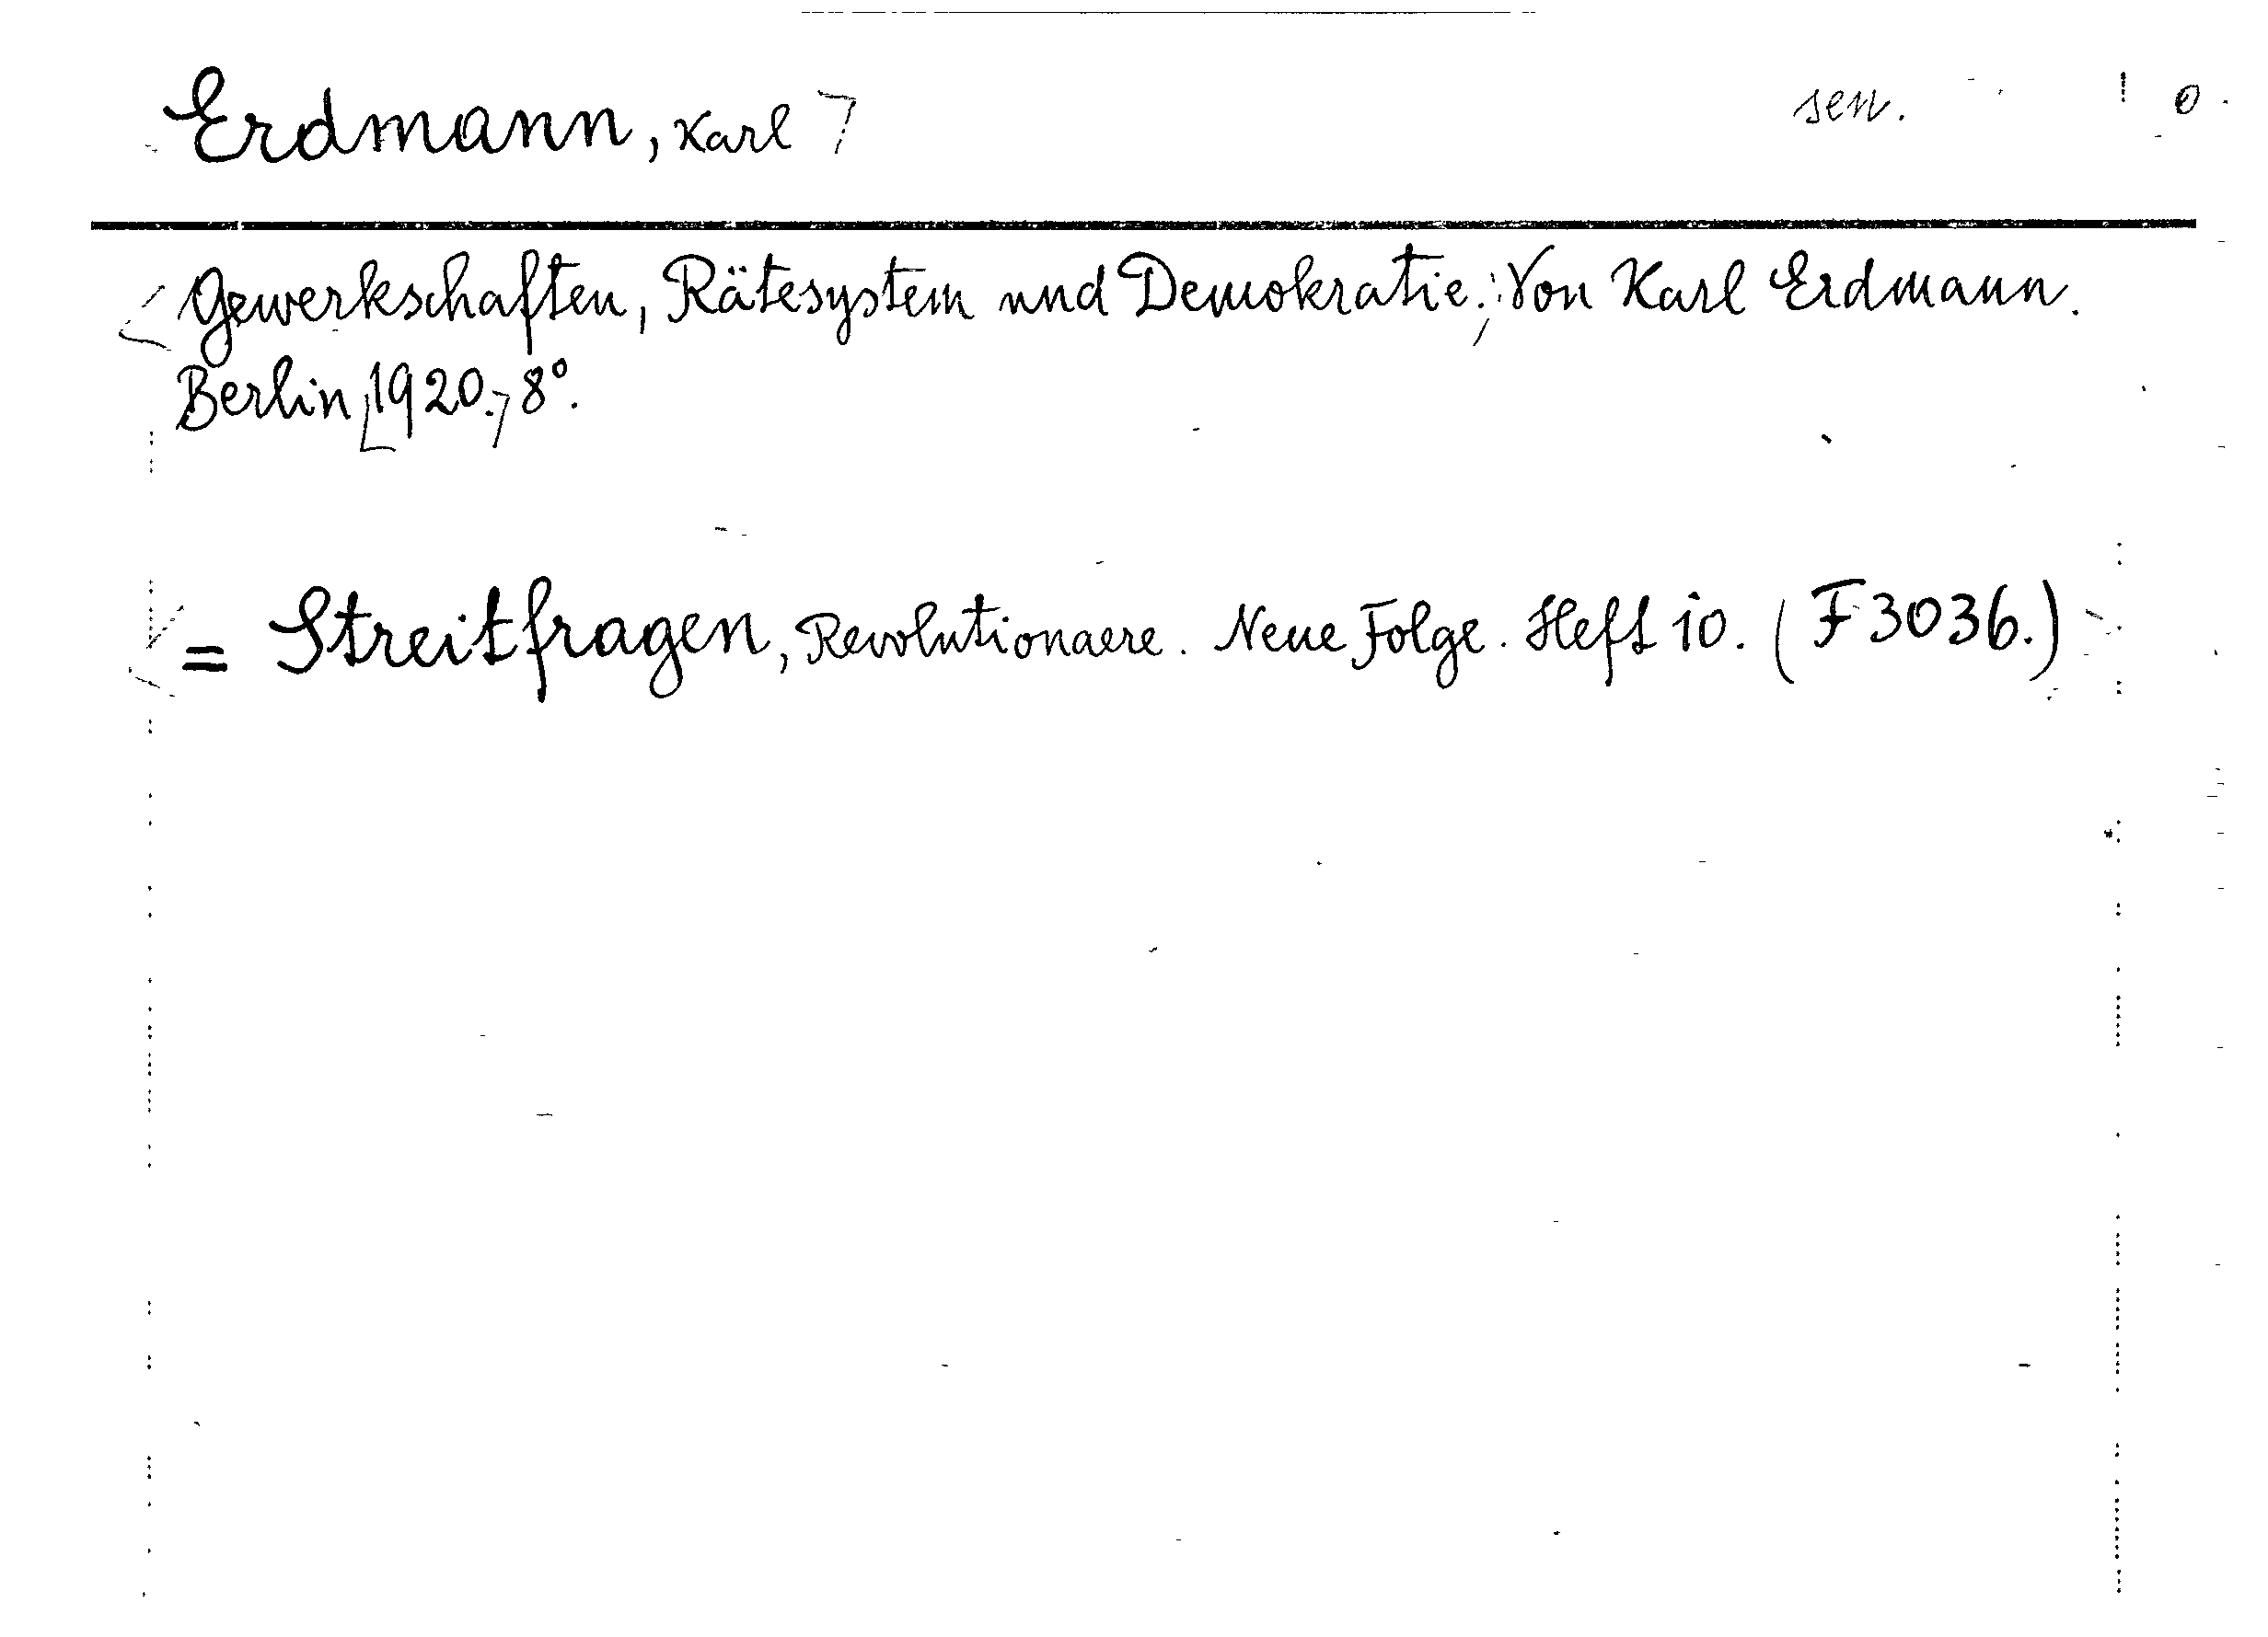 Erdmann, Karl sen. 0
Gewerkschaften, Rätesystem und Demokratie. Von Karl Erdmann.
Berlin 1920. 8°.
= Streitfragen, Revolutionaere. Neue Folge. Heft 10. (F 3036.)